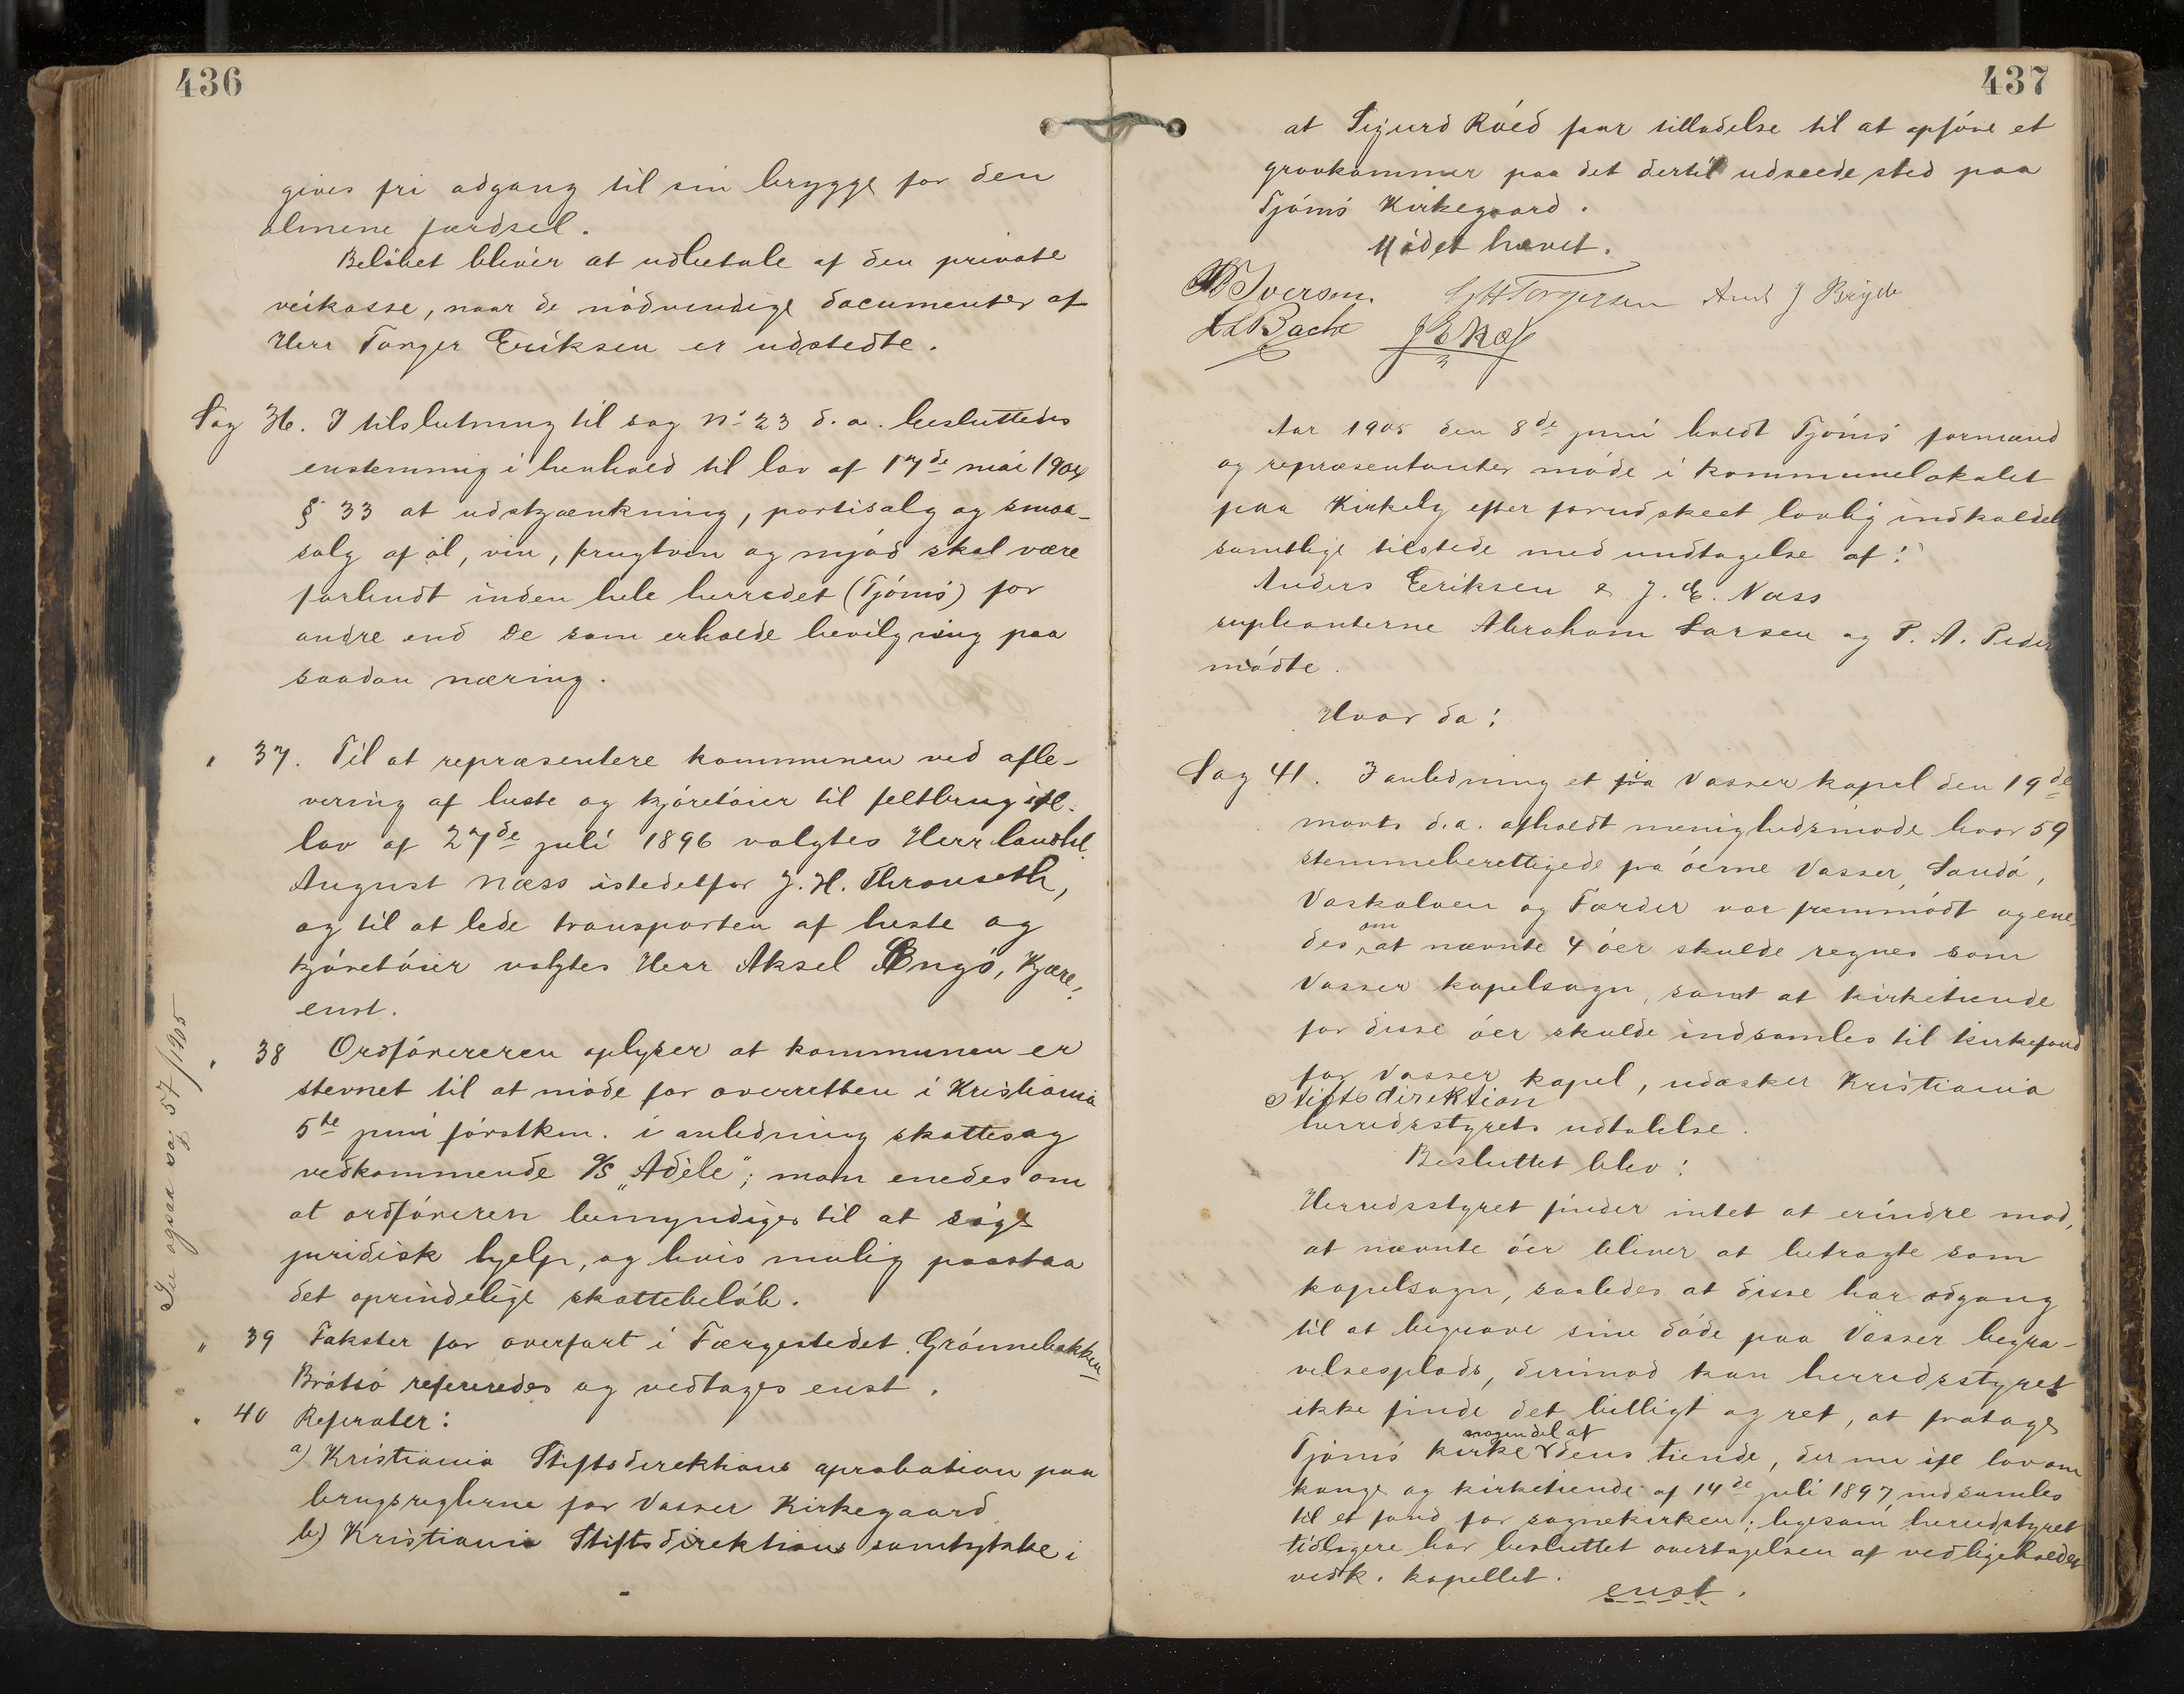 436
gives fri adgang til sin brygge for den
almene færdsel.
Beløbet bliver at udbetale af den private
veikasse, naar de nødvendige documenter af
Herr Torger Eriksen er udstedte.
Sag 36. I tilslutning til sag No 23 d.a. besluttedes
enstemmig i henhold til lov af 17de mai 1904
§ 33 at udskjænkning, partisalg og smaa-
salg af øl, vin, frugtvin og mjød skal være
forbudt inden hele herredet (Tjømø) for
andre end de som erholde bevilgning paa
saadan næring.
" 37. Til at repræsentere kommunen ved afle-
vering af heste og kjøretøier til feltbrug ifl.
lov af 27de juli 1896 valgtes Herr landhl.
August Næss istedetfor J. H. Thronseth,
og til at lede transporten af heste og
kjøretøier valgtes Herr Aksel Bngø, Kjære,
enst.
Se ogsaa sag 57/1905
" 38 Ordføreren oplyser at kommunen er
stevnet til at møde for overretten i Kristiania
5te juni førstkm. i anledning skattesag
vedkommende A/S „Adèle"; man enedes om
at ordføreren bemyndiges til at søge
juridisk hjelp, og hvis mulig paastaa
det oprindelige skattebeløb.
" 39 Takster for overfart i Færgestedet Grønnebakken
Brøtsø refereredes og vedtages enst.
" 40 Referater:
a) Kristiania Stiftsdirektions aprobation paa
brugsreglerne for Vasser Kirkegaard
b) Kristiania Stiftsdirektions samtykke i
437
at Sigurd Røed faar tilladelse til at opføre et
gravkammer paa det dertil udseede sted paa
Tjømø Kirkegaard.
Mødet hævet.
Iversen. G H Torgersen And J Bryde
A L Bache J E Næss
Aar 1905 den 8de juni holdt Tjømø formænd
og repræsentanter møde i kommunelokalet
paa Kirkely efter forudskeet lovlig indkaldelse
samtlige tilstede med undtagelse af:
Anders Eriksen & J. E. Næss
supleanterne Abraham Larsen og P. A. Peder
mødte.
Hvor da:
Sag 41. I anledning et i Vasser kapel den 19de
marts d.a. afholdt menighedsmøde hvor 59
stemmeberettigede fra øerne Vasser, Sandø,
Vaskalven og Færder var fremmødt og ene-
des om at nævnte 4 øer skulde regnes som
Vasser kapelsogn, samt at kirketiende
for disse øer skulde indsamles til kirkefond
for Vasser kapel, udæsker Kristiania
Stiftsdirektion
herredsstyrets udtalelse.
Besluttet blev:
Herredsstyret finder intet at erindre mod,
at nævnte øer bliver at betragte som
kapelsogn, saaledes at disse har adgang
til at begrave sine døde paa Vasser begra-
velsesplads, derimod kan herredsstyret
ikke finde det billigt og ret, at fratage
Tjømø kirke nogen del af dens tiende, der nu ifl lov om
konge og kirketiende af 14de juli 1897 indsamles
til et fond for sognekirken; ligesom herredstyret
tidligere har besluttet overtagelsen af vedligeholdet
vedk. kapellet. enst.